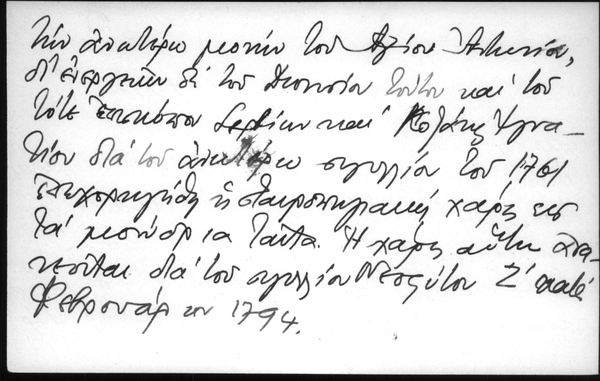 τὴν ἀνωτέρω μονὴν τοῦ Ἁγίου Ἀντωνίου,
δι' ἐνεργειῶν δὲ τοῦ Διονυσίου τούτου καὶ τοῦ
τότε Ἐπισκόπου Σερβίων καὶ Κοζάνης Ἰγνα-
τίου διὰ τοῦ ἀνωτέρω σιγιλλίου τοῦ 1761
ἐπεχορηγήθη ἡ σταυροπηγιακὴ χάρις εἰς
τὰ μονύδρια ταῦτα. Ἡ χάρις αὕτη ἀνα-
νεοῦται διὰ τοῦ σιγιλλίου Νεοφύτου Ζ' κατὰ
Φεβρουάριον 1794.